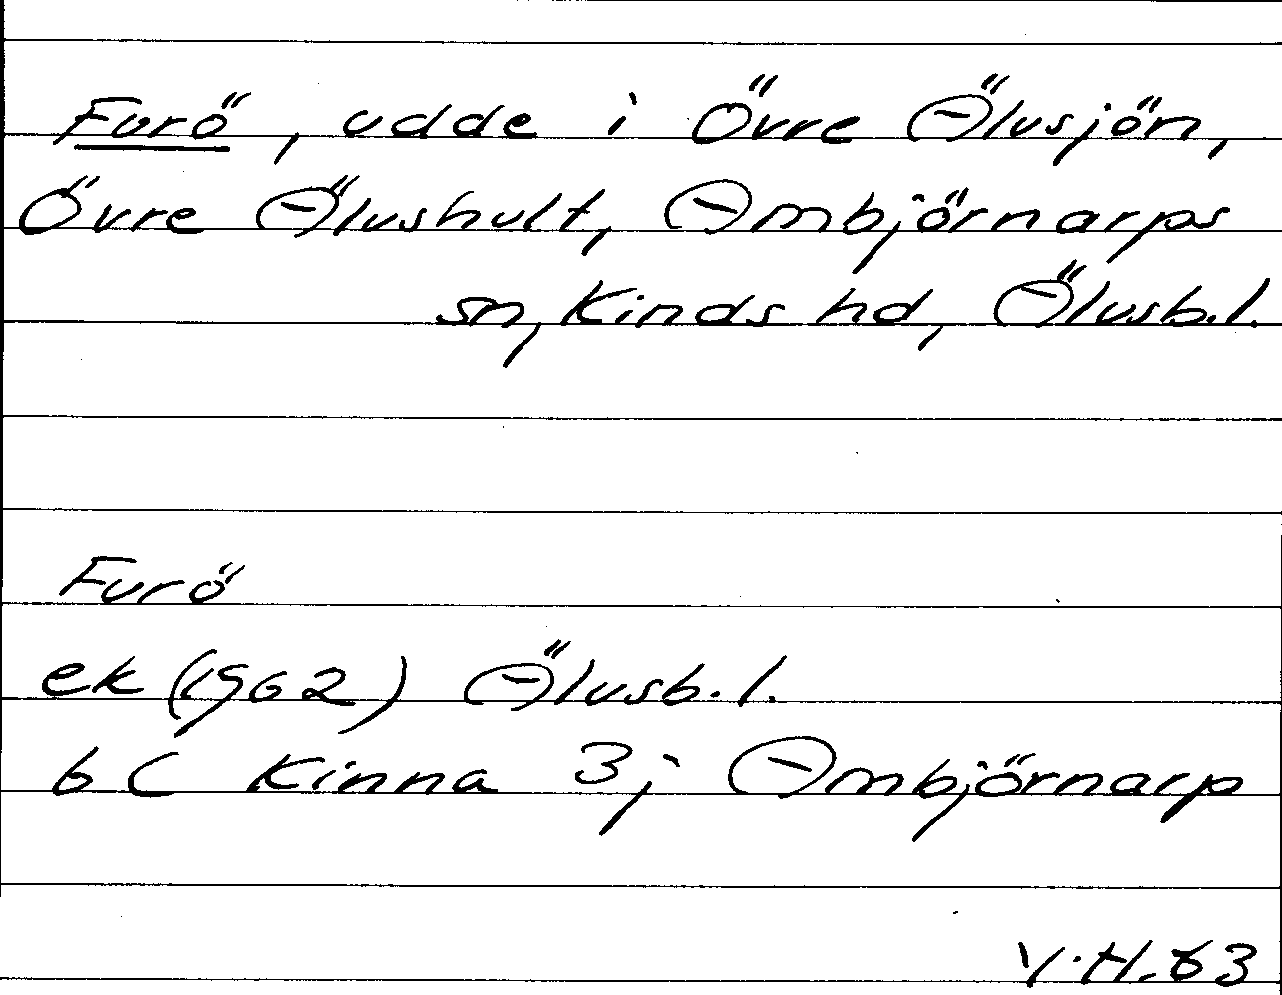 Furö, udde i Övre Älvsjön,
Övre Älvshult, Ambjörnarps
sn, Kinds hd, Älvsb.l.
Furö
ek (1962) Älvsb.l.
6 C Kinna 3j Ambjörnarp
V.H. 63